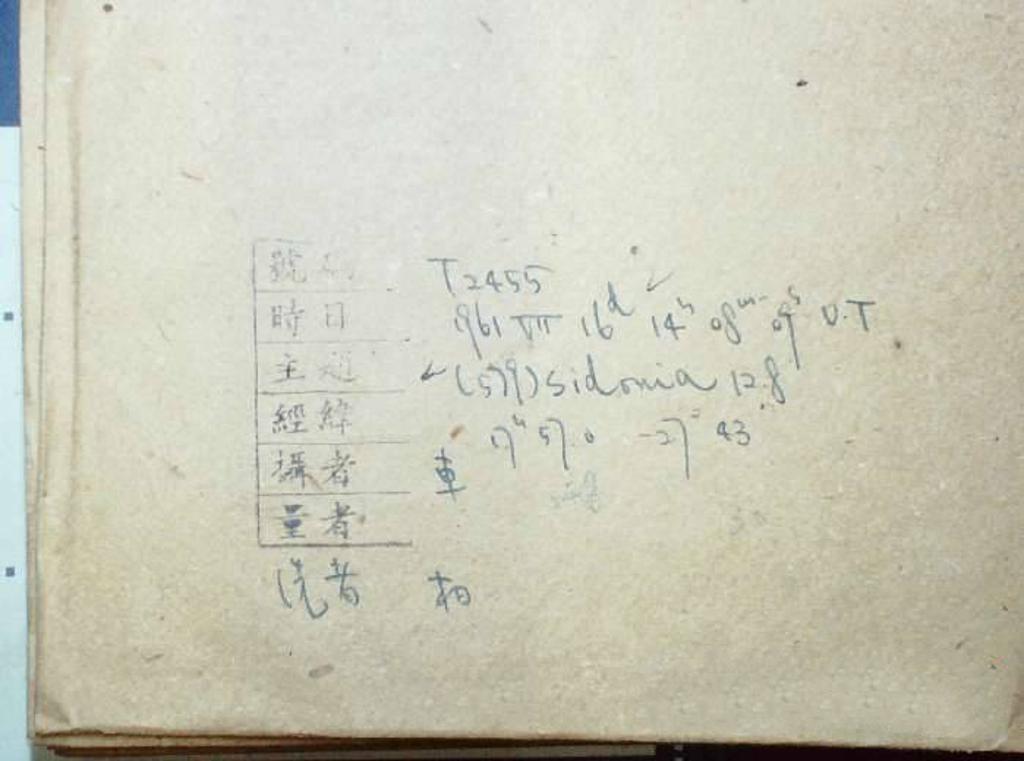 號碼 T2455
時日 1961 VII 16d 14h 08m 09s U.T
主題 (579) Sidonia 12.8
經緯 17h 57.0 -27° 43'
攝者 車
量者
洗者 柏